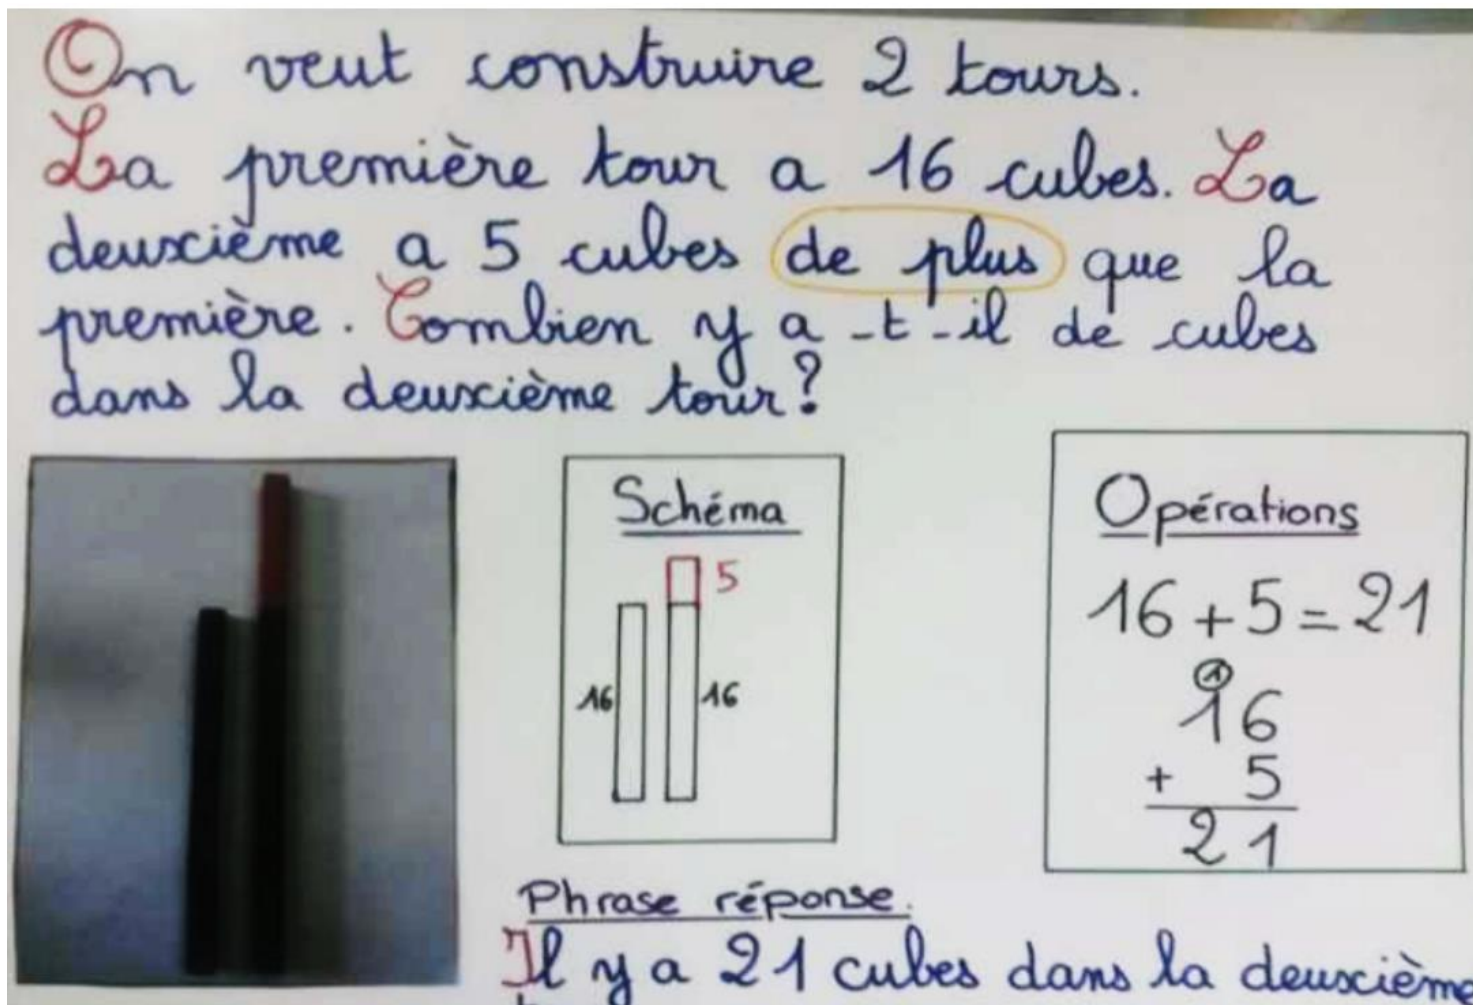 On veut construire 2 tours.
La première tour a 16 cubes. La
deuxième a 5 cubes de plus que la
première. Combien y a-t-il de cubes
dans la deuxième tour?
Schéma
5
16
16
Opérations
16 + 5 = 21
1
16
+ 5
21
Phrase réponse.
Il y a 21 cubes dans la deuxième